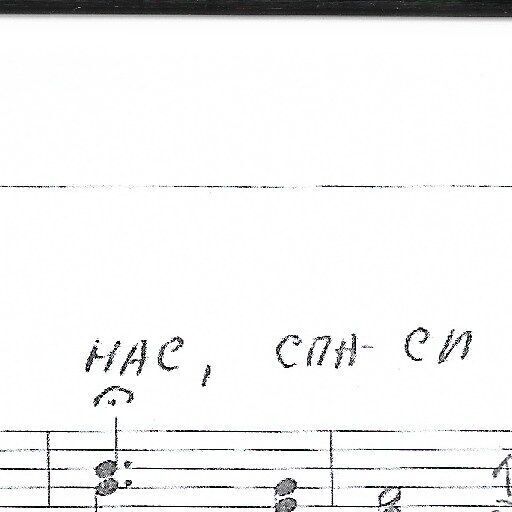 НАС, СПА- СИ